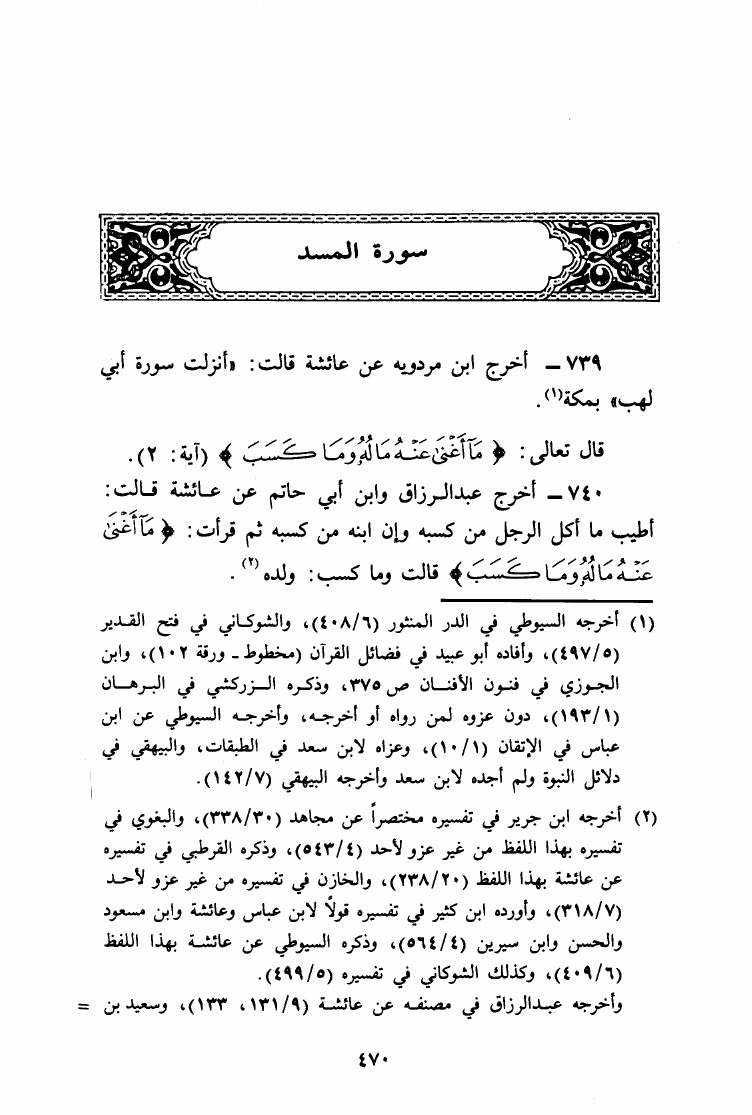 سورة المسد
٧٣٩ ــ أخرج ابن مردويه عن عائشة قالت: «أنزلت سورة أبي
لهب» بمكة(١).
قال تعالى: ﴿ مَآ أَغْنَىٰ عَنْـهُ مَالُهُۥ وَمَا كَـسَبَ ﴾ (آية: ٢).
٧٤٠ ــ أخرج عبدالـرزاق وابن أبي حاتم عن عـائشة قـالت:
أطيب ما أكل الرجل من كسبه وإن ابنه من كسبه ثم قرأت: ﴿ مَآ أَغْنَىٰ
عَنْـهُ مَالُهُۥ وَمَا كَـسَبَ ﴾ قالت وما كسب: ولده(٢).
(١) أخرجه السيوطي في الدر المنثور (٤٠٨/٦)، والشوكـاني في فتح القـدير
(٤٩٧/٥)، وأفاده أبو عبيد في فضائل القرآن (مخطوط ـ ورقة ١٠٢)، وابن
الجـوزي في فنـون الأفنــان ص ٣٧٥، وذكـره الــزركشي في البـرهــان
(١٩٣/١)، دون عزوه لمن رواه أو أخرجـه، وأخرجـه السيوطي عن ابن
عباس في الإتقان (١٠/١)، وعزاه لابن سعد في الطبقات، والبيهقي في
دلائل النبوة ولم أجده لابن سعد وأخرجه البيهقي (١٤٢/٧).
(٢) أخرجه ابن جرير في تفسيره مختصراً عن مجاهد (٣٣٨/٣٠)، والبغوي في
تفسيره بهذا اللفظ من غير عزو لأحد (٥٤٣/٤)، وذكره القرطبي في تفسيره
عن عائشة بهذا اللفظ (٢٣٨/٢٠)، والخازن في تفسيره من غير عزو لأحـد
(٣١٨/٧)، وأورده ابن كثير في تفسيره قولاً لابن عباس وعائشة وابن مسعود
والحسن وابن سيرين (٥٦٤/٤)، وذكره السيوطي عن عائشـة بهذا اللفظ
(٤٠٩/٦)، وكذلك الشوكاني في تفسيره (٤٩٩/٥).
وأخرجه عبـدالرزاق في مصنفـه عن عائشـة (١٣١/٩، ١٣٣)، وسعيد بن =
٤٧٠